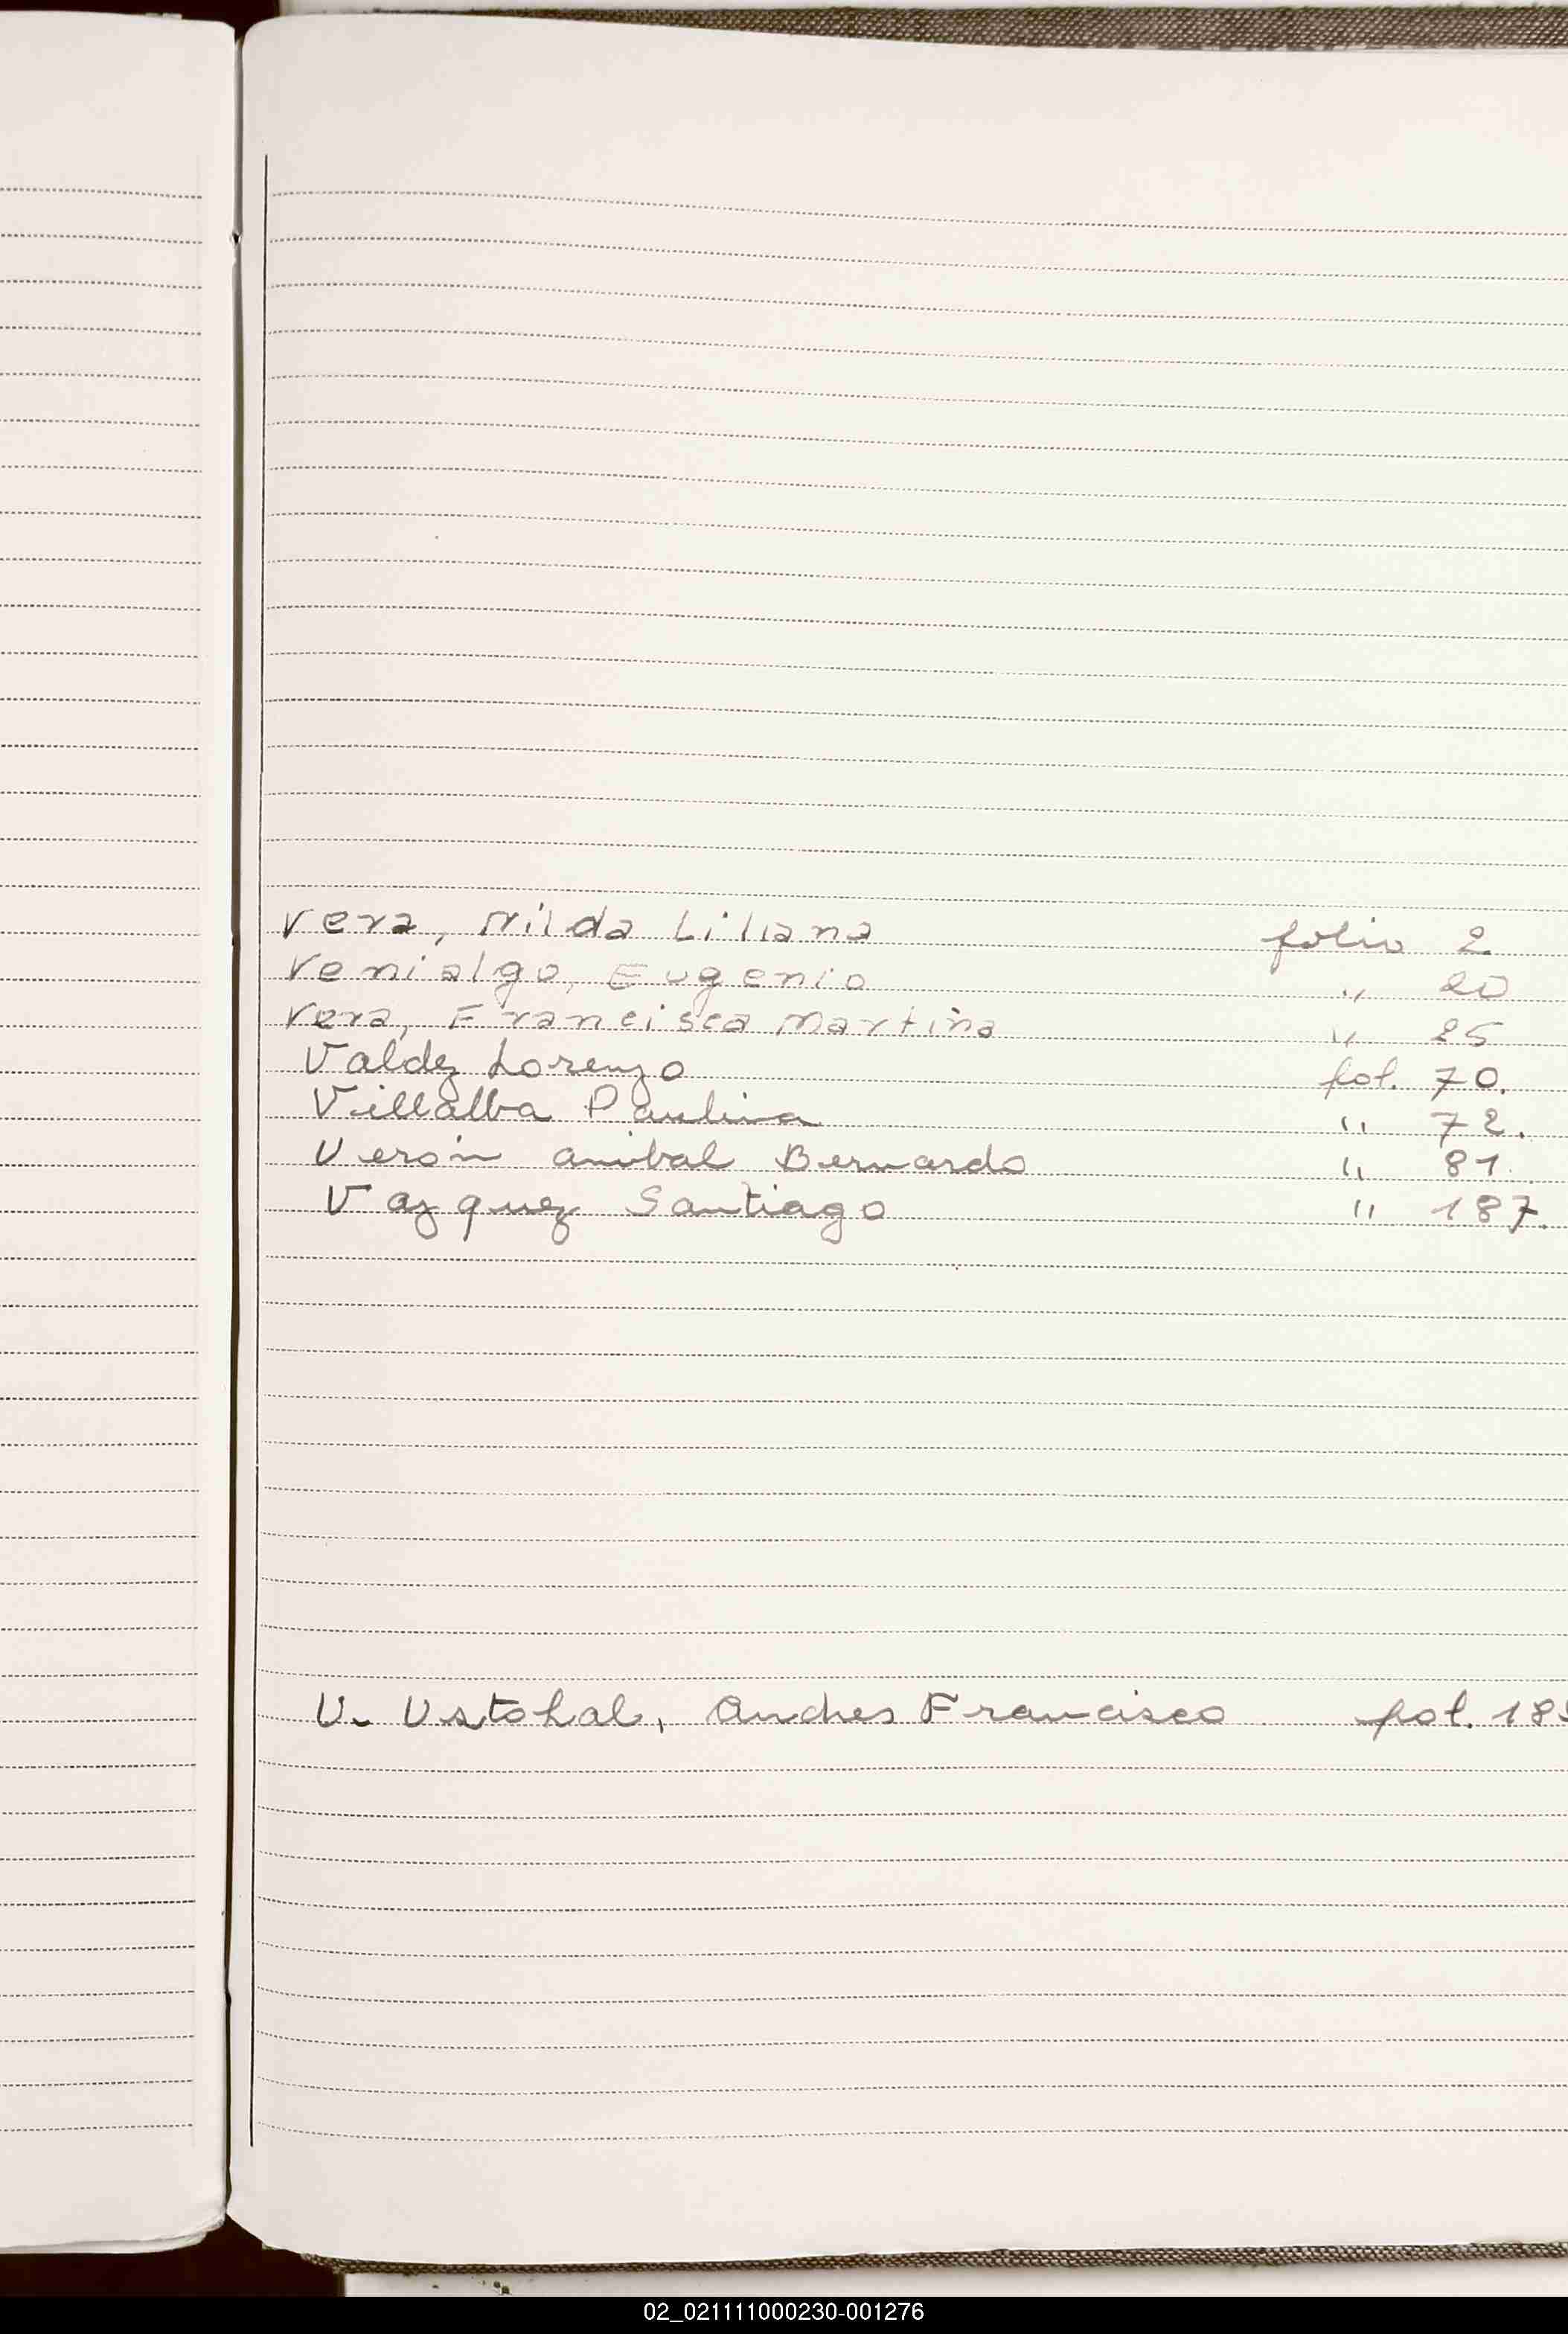 Vera, Nilda Liliana folio 2
Venialgo, Eugenio " 20
Vera, Francisca Martina " 25
Valdez Lorenzo fol. 70.
Villalba Paulina " 72.
Verón Anibal Bernardo " 81.
Vazquez Santiago " 187.
U. Ustohal, Andres Francisco fol. 18
02_021111000230-001276